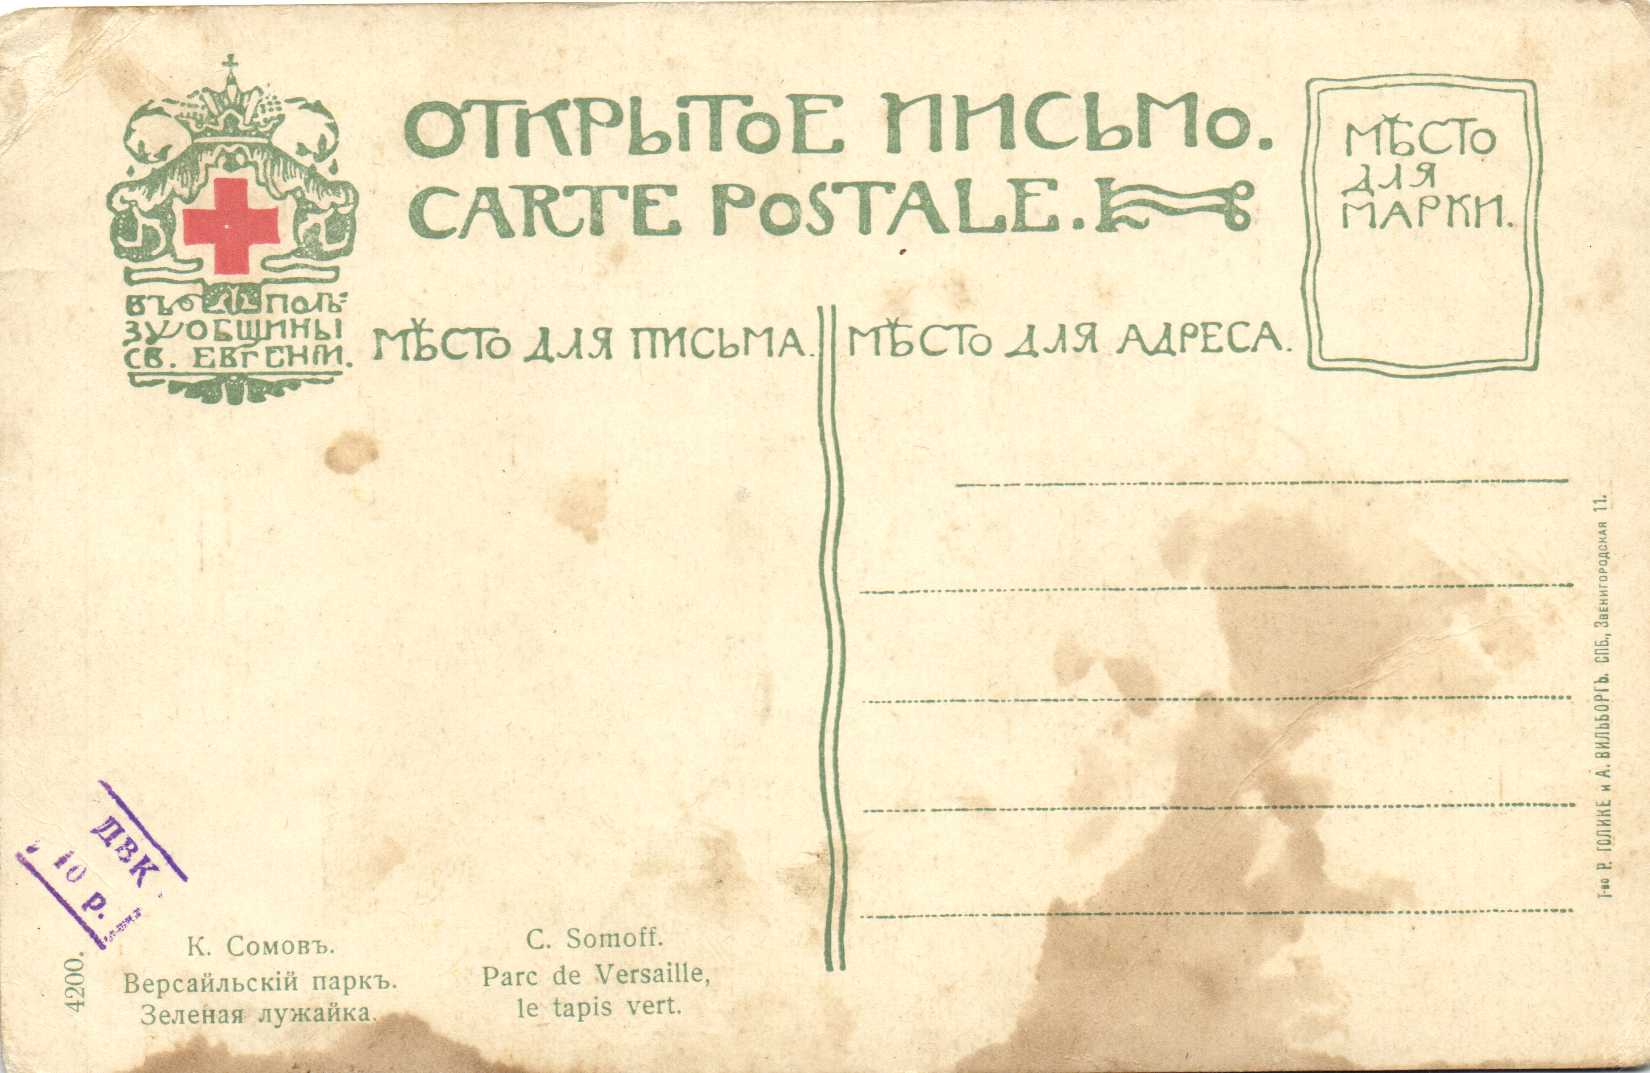 ОТКРЫТОЕ ПИСЬМО.
CARTE POSTALE.
МѢСТО
ДЛЯ
МАРКИ.
ВЪ ПОЛЬ=
ЗУ ОБЩИНЫ
СВ. ЕВГЕНІИ.
МѢСТО ДЛЯ ПИСЬМА.
МѢСТО ДЛЯ АДРЕСА.
Т-во Р. ГОЛИКЕ и А. ВИЛЬБОРГЪ. СПБ., Звенигородская 11.
ДВК
10 р.
4200.
К. Сомовъ.
Версайльскій паркъ.
Зеленая лужайка.
C. Somoff.
Parc de Versaille,
le tapis vert.